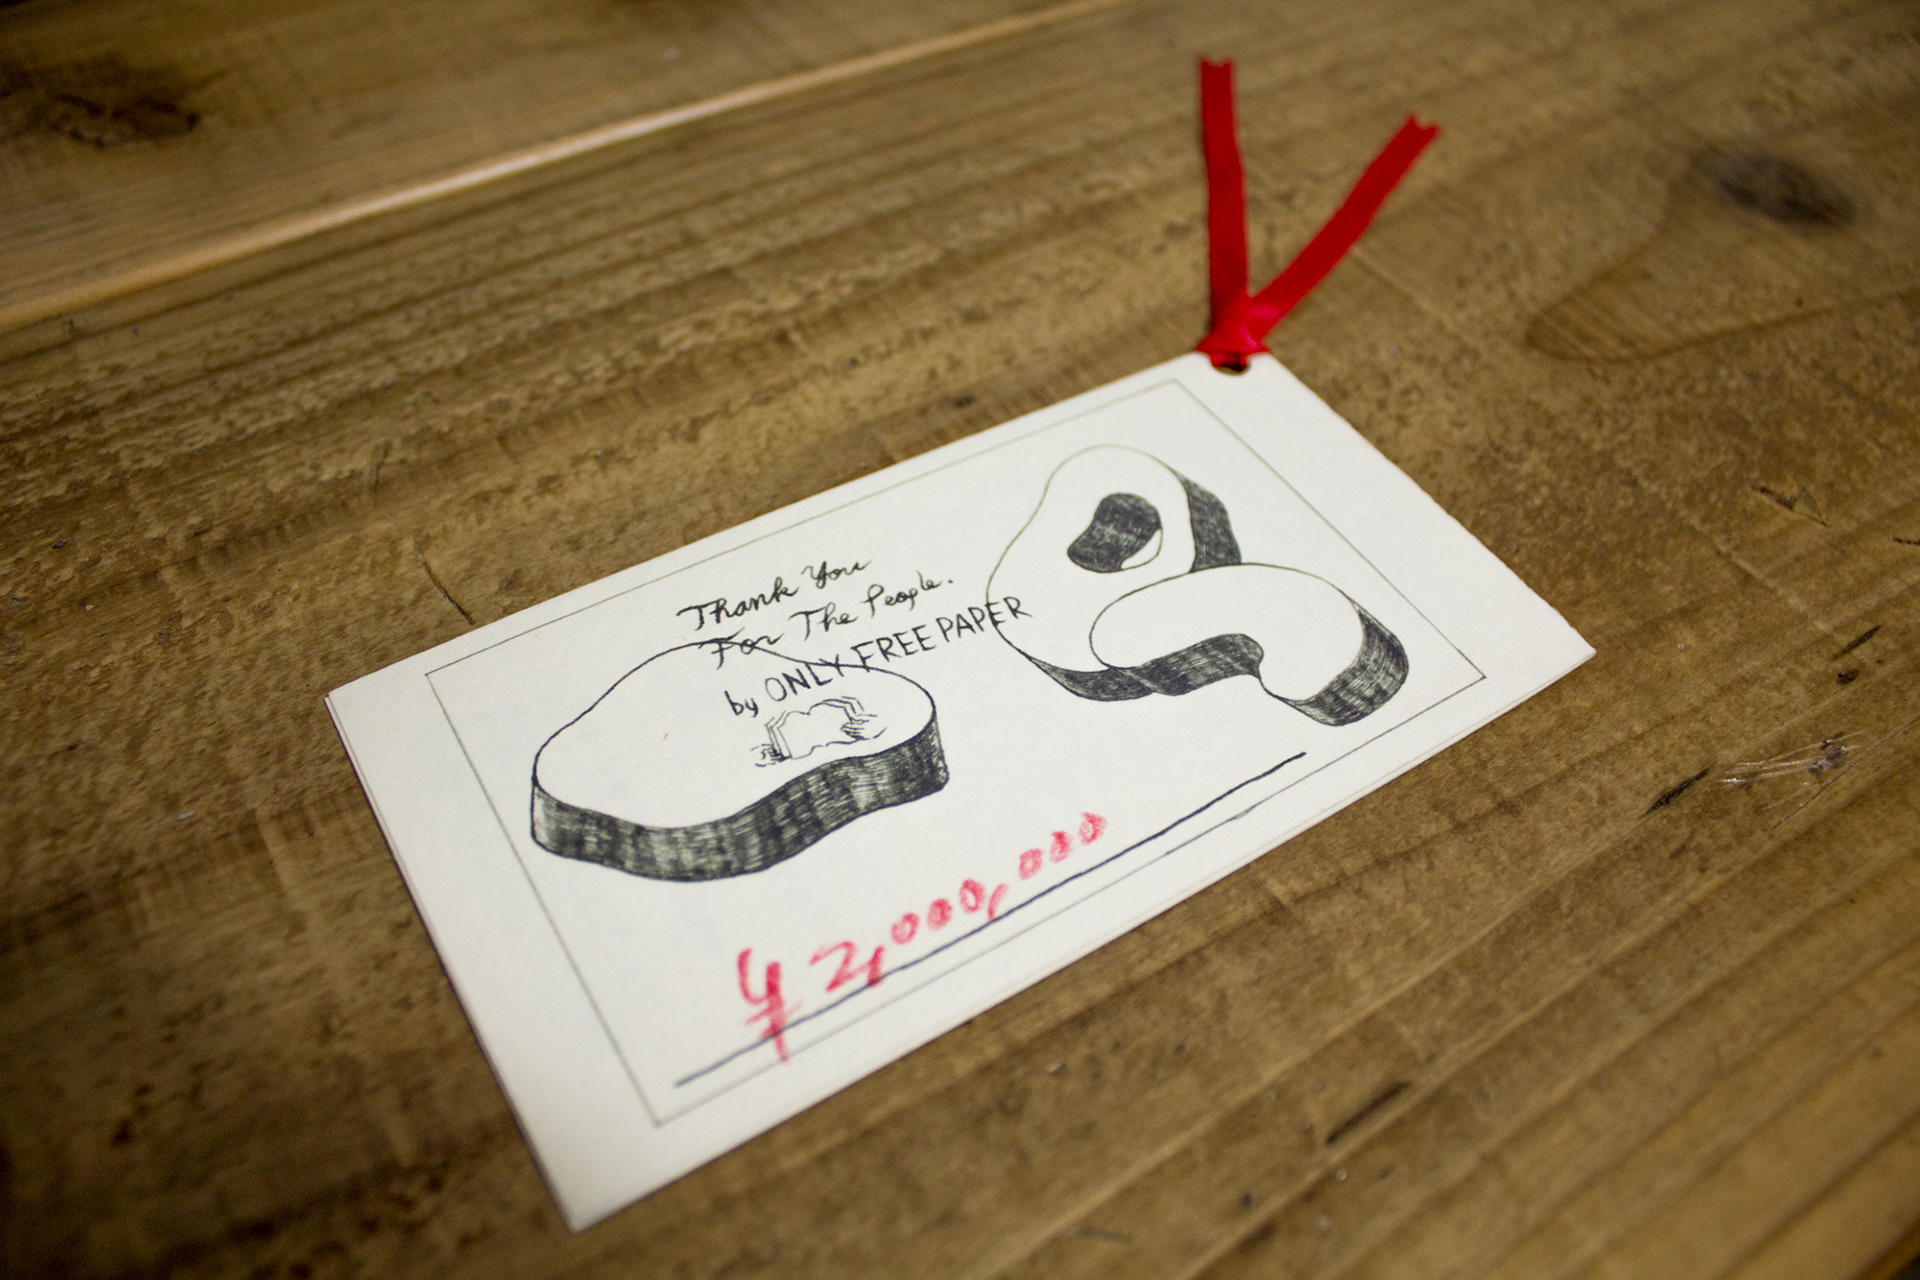 Thank You
For The People.
by ONLY FREE PAPER
¥2,000,000